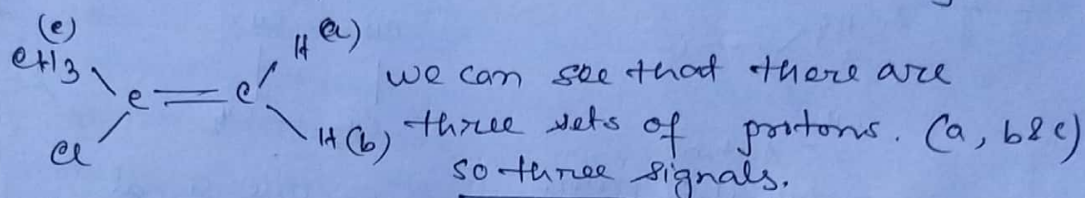 (c)
CH3
H (a)
C = C
Cl
H (b)
we can see that there are
three sets of protons. (a, b & c)
so three signals.